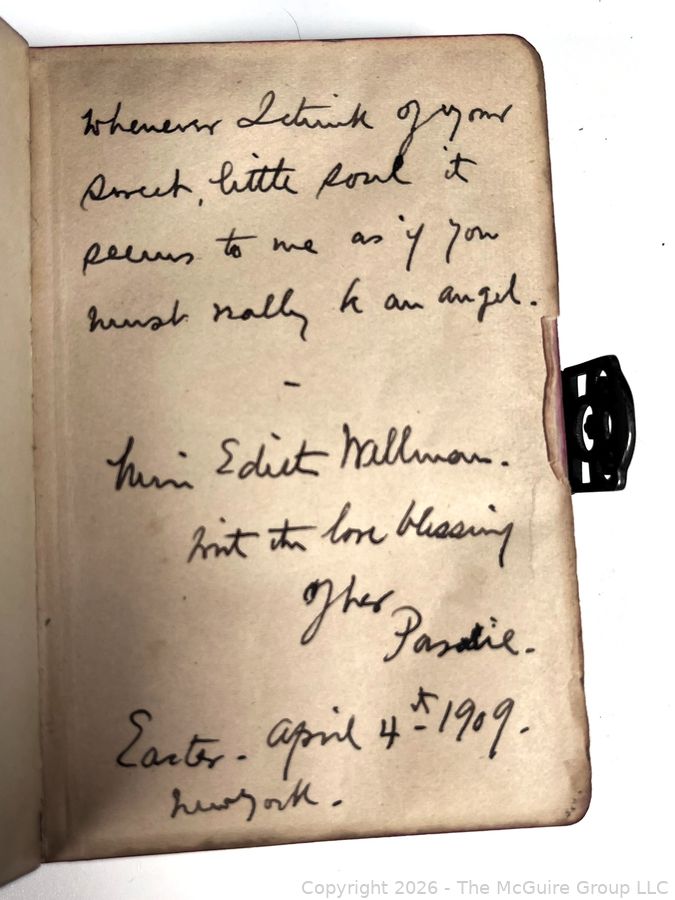 Whenever I think of your
sweet, little soul it
seems to me as if you
must really be an angel.
-
Miss Edith Wellman.
with the love blessing
of her
April 4th 1909.
Easter.
New York.
Copyright 2026 - The McGuire Group LLC